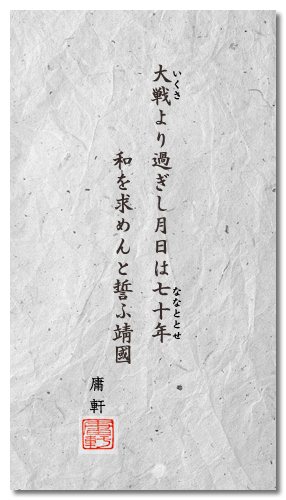 大戦より過ぎし月日は七十年
いくさ
ななととせ
和を求めんと誓ふ靖國
庸軒